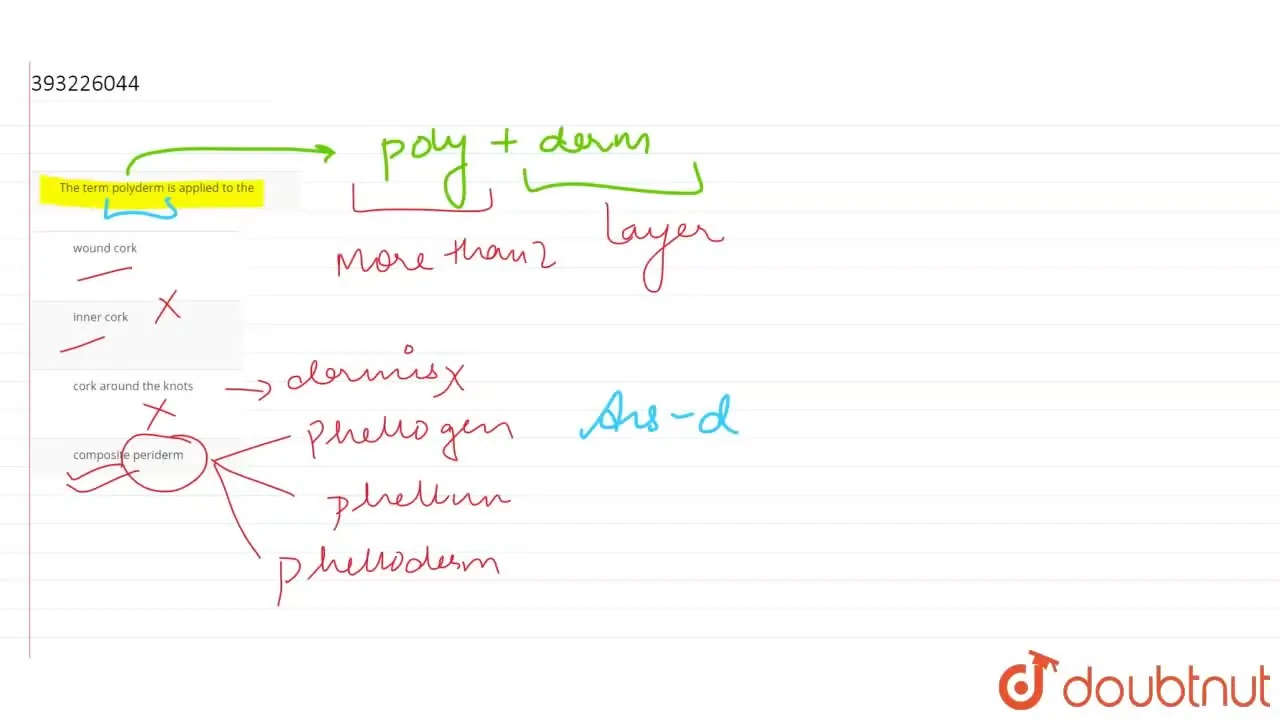 393226044
poly + derm
The term polyderm is applied to the
more than 2
layer
wound cork
X
inner cork
cork around the knots
dermis X
X
phellogen
Ans - d
composite periderm
phellum
phelloderm
doubtnut